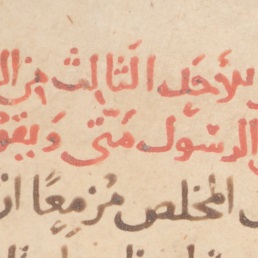 للأَحَدِ الثَالِث مِنَ
الرسُول مَتّى وَيقو
المخلص مُزمِعًا ان